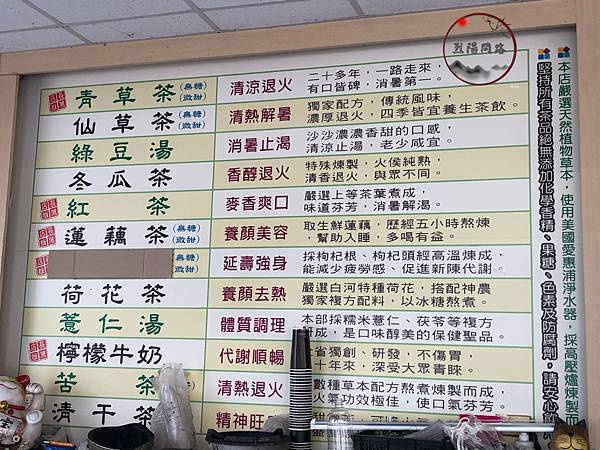 烈陽開路
青草茶 (無糖/微甜) 清涼退火 二十多年，一路走來，
有口皆碑，消暑第一。
仙草茶 (無糖/微甜) 清熱解暑 獨家配方，傳統風味，
濃厚退火，四季皆宜養生茶飲。
綠豆湯 消暑止渴 沙沙濃濃香甜的口感，
清涼止渴，老少咸宜。
冬瓜茶 香醇退火 特殊煉製，火侯純熟，
清香退火，與眾不同。
紅茶 麥香爽口 嚴選上等茶葉煮成，
味道芬芳，消暑解渴。
蓮藕茶 (無糖/微甜) 養顏美容 取生鮮蓮藕，歷經五小時熬煉
，幫助入睡，多喝有益。
(無糖/微甜) 延壽強身 採枸杞根、枸杞頭經高溫煉成，
能減少疲勞感、促進新陳代謝。
荷花茶 養顏去熱 嚴選白河特種荷花，搭配神農
獨家複方配料，以冰糖熬煮。
薏仁湯 體質調理 本部採糯米薏仁、茯苓等複方
成，是口味醇美的保健聖品。
檸檬牛奶 代謝順暢 省獨創、研發，不傷胃，
十年來，深受大眾青睞。
苦茶 清熱退火 數種草本配方熬煮煉製而成，
火氣功效極佳，使口氣芬芳。
清干茶 精神旺
本店嚴選天然植物草本，使用美國愛惠浦淨水器，採高壓爐煉製而
堅持所有茶品絕無添加化學香精、果糖、色素及防腐劑，請安心飲